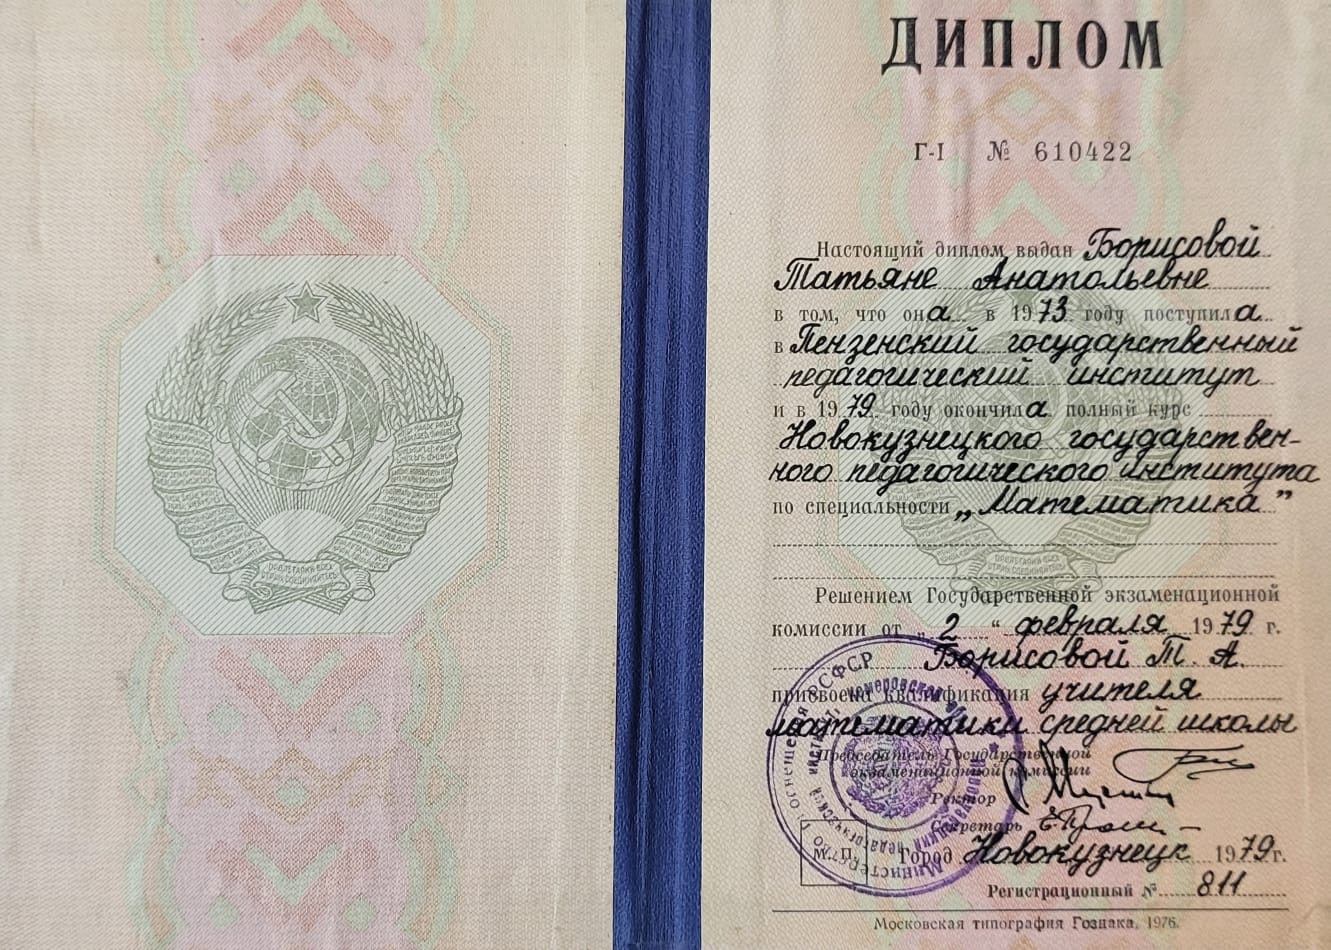 ПРОЛЕТАРИИ ВСЕХ
СТРАН, СОЕДИНЯЙТЕСЬ!
ДИПЛОМ
Г-I № 610422
Настоящий диплом выдан Борисовой
Татьяне Анатольевне
в том, что она в 1973 году поступила
в Пензенский государственный
педагогический институт
и в 1979 году окончила полный курс
Новокузнецкого государствен-
ного педагогического института
по специальности „Математика"
Решением Государственной экзаменационной
комиссии от „2" февраля 1979 г.
Борисовой Т. А.
присвоена квалификация учителя
математики средней школы
Председатель Государственной
экзаменационной комиссии
Ректор
Секретарь
М. П. Город Новокузнецк 1979 г.
Регистрационный № 811
Московская типография Гознака, 1976.